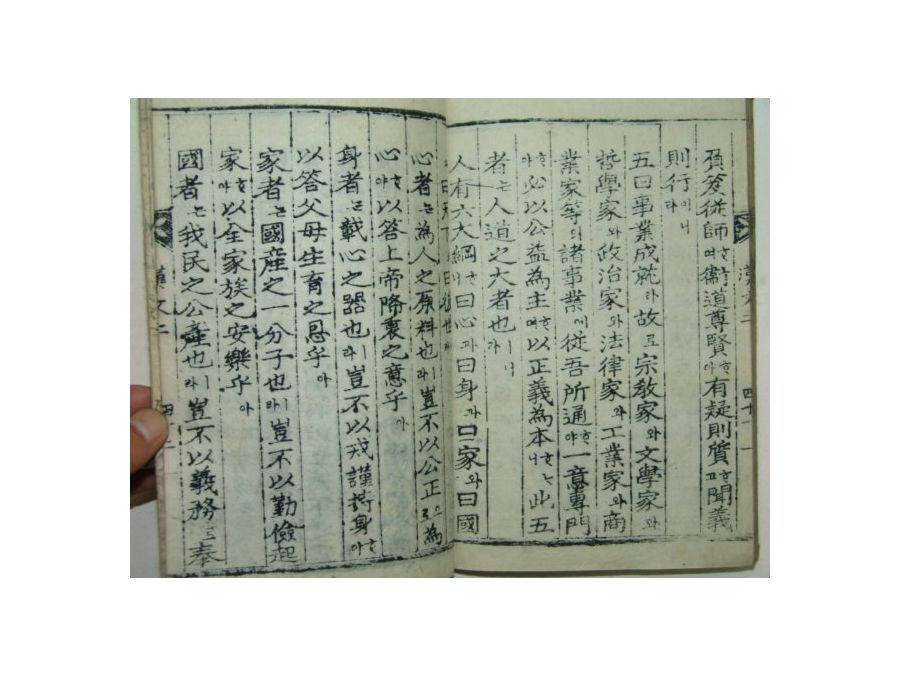 負笈從師ᄒᆞ여衛道尊賢ᄒᆞ야有疑則質ᄒᆞ고聞義
則行이니라
五曰事業成就라故로宗敎家와文學家와
哲學家와政治家와法律家와工業家와商
業家等의諸事業에從吾所通ᄒᆞ야一意專門
ᄒᆞ야必以公益為主ᄒᆞ며以正義為本ᄒᆞᄂᆞ니此五
者ᄂᆞᆫ人道之大者也ㅣ니라
人有六大綱ᄒᆞ니曰心과曰身과曰家와曰國
曰天
心者ᄂᆞᆫ為人之原料也ㅣ라豈不以公正으로為
心ᄒᆞ야以答上帝降衷之意乎아
身者ᄂᆞᆫ載心之器也ㅣ라豈不以戒謹持身ᄒᆞ야
以答父母生育之恩乎아
家者ᄂᆞᆫ國產之一分子也ㅣ라豈不以勤儉起
家ᄒᆞ야以全家族之安樂乎아
國者ᄂᆞᆫ我民之公產也ㅣ라豈不以義務로奉
漢文二